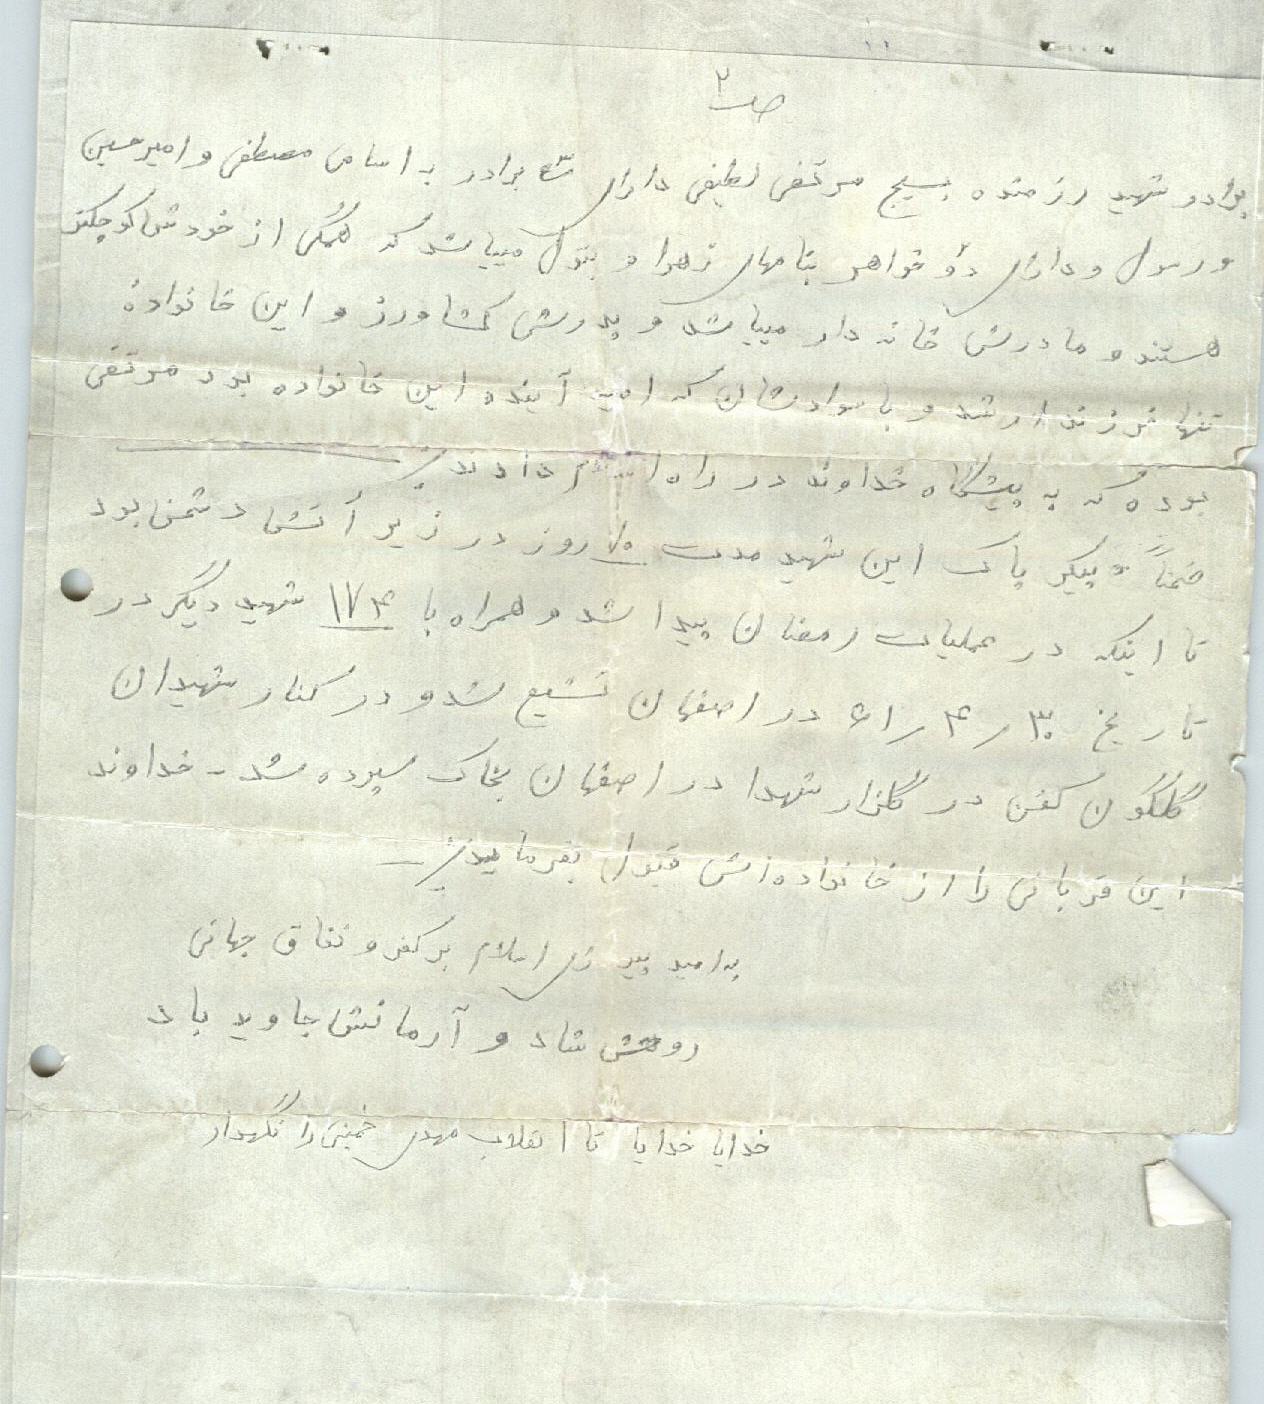 ص ۲
برادر شهید رزمنده بسیج مرتضی لطیفی دارای ۳ برادر به اسامی مصطفی و امیرحسین
و رسول و دارای دو خواهر بنامهای زهرا و بتول میباشد که همگی از خودش کوچکتر
هستند و مادرش خانه دار میباشد و پدرش کشاورز و این خانواده
تنها فرزند ارشد و با سوادشان که امید آینده این خانواده بود مرتضی
بوده که به پیشگاه خداوند در راه اسلام دادند
ضمناً پیکر پاک این شهید مدت ۷۰ روز در زیر آتش دشمن بود
تا اینکه در عملیات رمضان پیدا شد و همراه با ۱۷۴ شهید دیگر در
تاریخ ۳۰ر۴ر۶۱ در اصفهان تشیع شد و در کنار شهیدان
گلگون کفن در گلزار شهدا در اصفهان بخاک سپرده شد - خداوند
این قربانی را از خانواده اش قبول بفرمایید
به امید پیروزی اسلام بر کفر و نفاق جهانی
روحش شاد و آرمانش جاوید باد
خدایا خدایا تا انقلاب مهدی خمینی را نگهدار